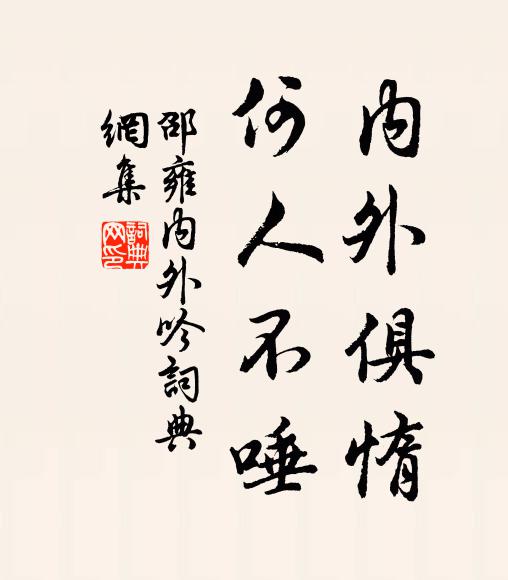 内外俱惰
何人不唾
邵雍内外吟詞典
網集
詞典
网印